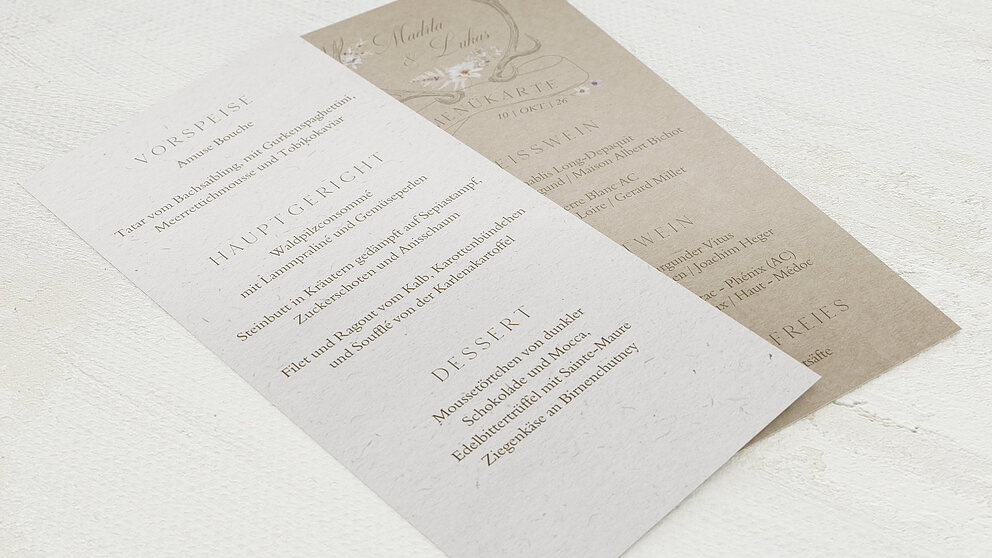 VORSPEISE
Amuse Bouche
Tatar vom Bachsaibling, mit Gurkenspaghettini,
Meerrettichmousse und Tobikokaviar
HAUPTGERICHT
Waldpilzconsommé
mit Lammpraliné und Gemüseperlen
Steinbutt in Kräutern gedämpft auf Sepiastampf,
Zuckerschoten und Anisschaum
Filet und Ragout vom Kalb, Karottenbündchen
und Soufflé von der Karlenakartoffel
DESSERT
Moussetörtchen von dunkler
Schokolade und Mocca,
Edelbittertrüffel mit Sainte-Maure
Ziegenkäse an Birnenchutney
Madita
& Lukas
MENÜKARTE
10 | OKT | 26
EISSWEIN
ablis Long-Depaquit
gund / Maison Albert Bichot
erre Blanc AC
Loire / Gerard Millet
TWEIN
rgunder Vitus
en / Joachim Heger
zac - Phénix (AC)
x / Haut - Médoc
FREIES
rsäfte